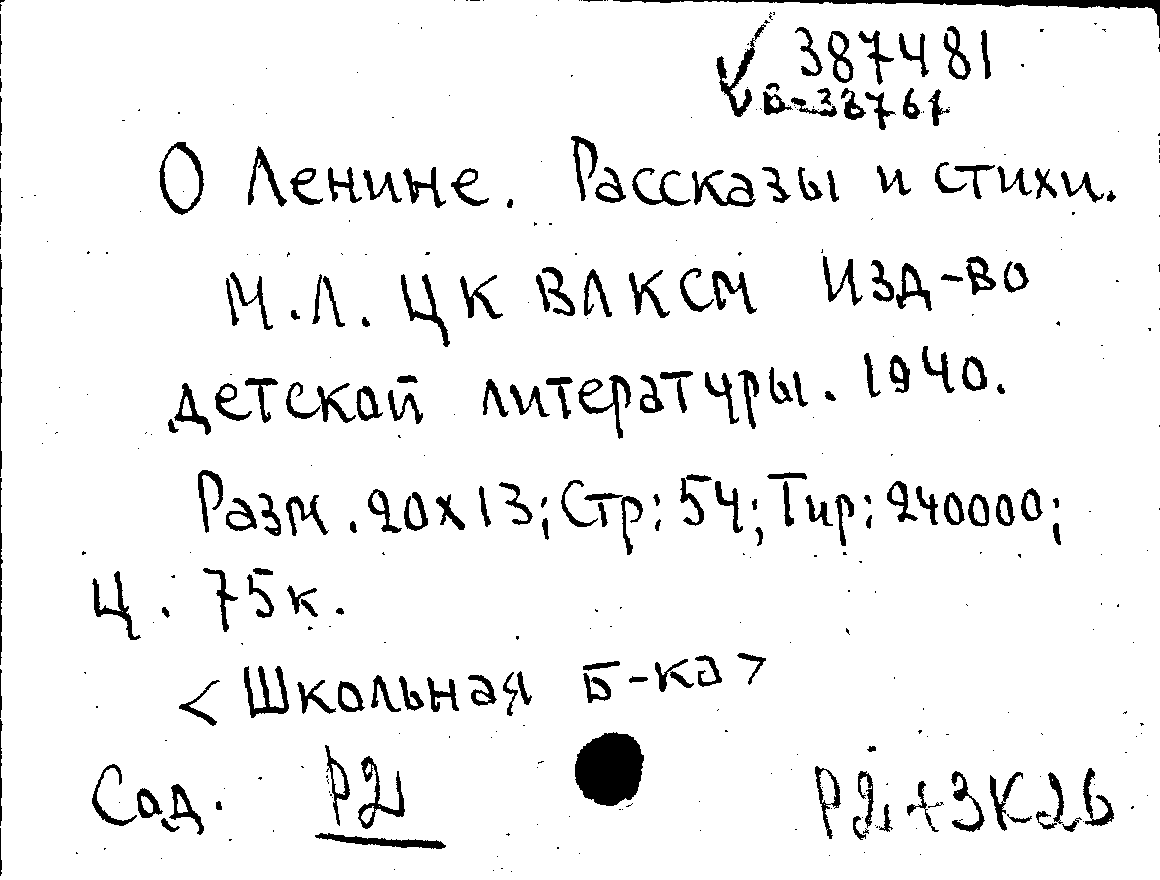 387481
Б-38761
О Ленине. Рассказы и стихи.
М.Л. ЦК ВЛКСМ Изд-во
детской литературы. 1940.
Разм. 20х13; Стр: 54; Тир: 240000;
Ц. 75к.
<Школьная б-ка>
Сод. Р2 Р2+3К26